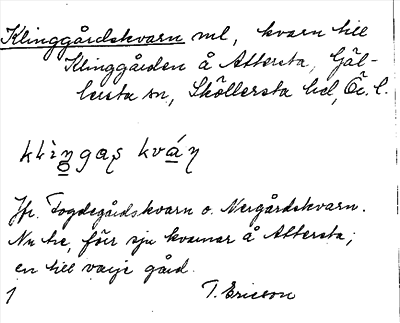 Klinggårdskvarn ml, kvarn till
Klinggården å Attersta, Gäl-
lersta sn, Sköllersta hd, Ör. l.
Jfr. Fogdegårdskvarn o. Nergårdskvarn.
Nu tre, förr sju kvarnar å Attersta;
en till varje gård.
1 T. Ericson